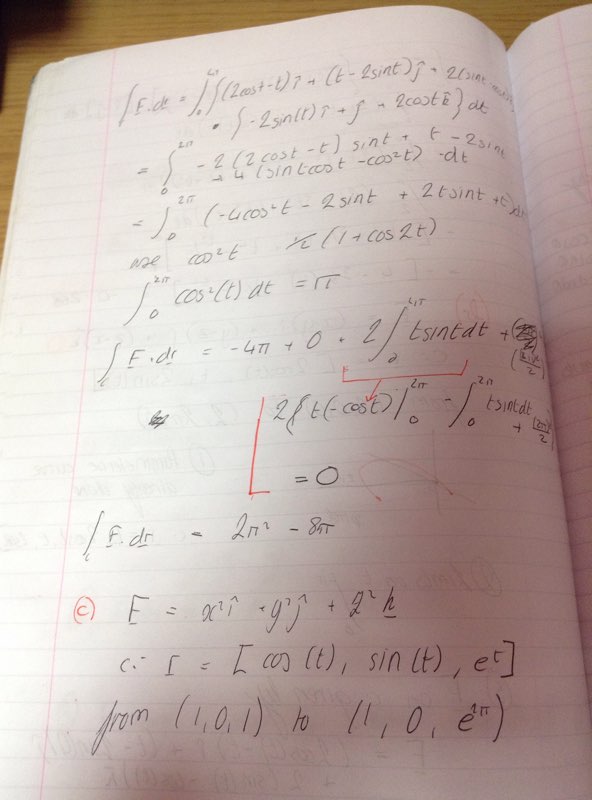 ∫ F.dr = ∫₀ {(2cost-t)î + (t-2sint)ĵ + 2(sint
• {-2sin(t)î + ĵ + 2cost k̂} dt
= ∫₀^2π -2(2cost-t) sint + t - 2sint
+ 4(sintcost - cos²t) dt
= ∫₀^2π (-4cos²t - 2sint + 2tsint + t) dt
use cos²t ½(1+cos2t)
∫₀^2π cos²(t) dt = π
∫_c F.dr = -4π + 0 + 2∫₀ tsintdt + (2π)²/2
2{t(-cost)|₀^2π - ∫₀^2π tsintdt + (2π)²/2
= 0
∫_c F.dr = 2π² - 8π
(c) F = x²î + y²ĵ + z²k
c: r = [cos(t), sin(t), e^t]
from (1,0,1) to (1, 0, e^2π)